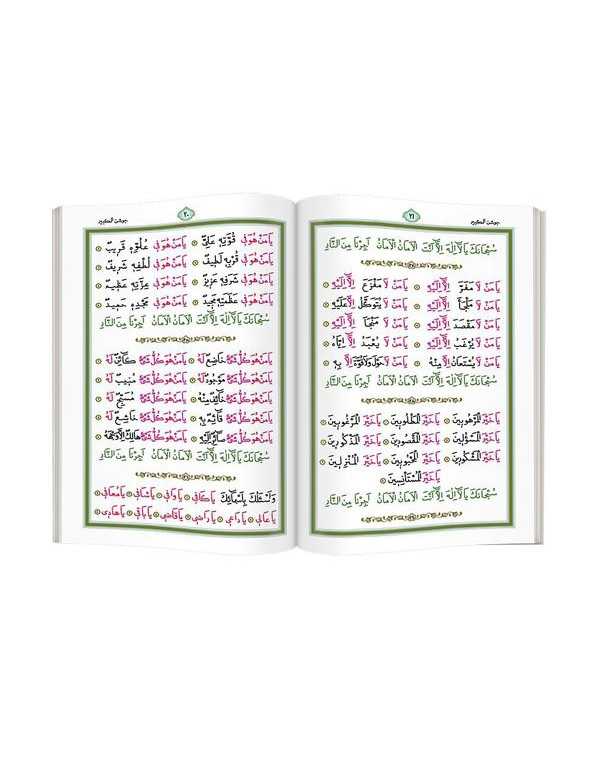 ٢٠
جوشن الكبير
يَا مَنْ هُوَ فِي قُوَّتِهِ عَلِيٌّ ۞ يَا مَنْ هُوَ فِي عُلُوِّهِ قَرِيبٌ ۞
يَا مَنْ هُوَ فِي قُرْبِهِ لَطِيفٌ ۞ يَا مَنْ هُوَ فِي لُطْفِهِ شَرِيفٌ ۞
يَا مَنْ هُوَ فِي شَرَفِهِ عَزِيزٌ ۞ يَا مَنْ هُوَ فِي عِزَّتِهِ عَظِيمٌ ۞
يَا مَنْ هُوَ فِي عَظَمَتِهِ مَجِيدٌ ۞ يَا مَنْ هُوَ فِي مَجْدِهِ حَمِيدٌ ۞
سُبْحَانَكَ يَا لَا اِلٰهَ اِلَّا اَنْتَ الْاَمَانُ الْاَمَانُ اَجِرْنَا مِنَ النَّارِ
يَا مَنْ هُوَ كُلُّ شَيْءٍ خَاضِعٌ لَهُ ۞ يَا مَنْ هُوَ كُلُّ شَيْءٍ كَائِنٌ لَهُ ۞
يَا مَنْ هُوَ كُلُّ شَيْءٍ مَوْجُودٌ لَهُ ۞ يَا مَنْ هُوَ كُلُّ شَيْءٍ مُنِيبٌ لَهُ ۞
يَا مَنْ هُوَ كُلُّ شَيْءٍ خَائِفٌ مِنْهُ ۞ يَا مَنْ هُوَ كُلُّ شَيْءٍ مُسَبِّحٌ لَهُ ۞
يَا مَنْ هُوَ كُلُّ شَيْءٍ قَائِمٌ بِهِ ۞ يَا مَنْ هُوَ كُلُّ شَيْءٍ خَاشِعٌ لَهُ ۞
يَا مَنْ هُوَ كُلُّ شَيْءٍ صَائِرٌ اِلَيْهِ ۞ يَا مَنْ هُوَ كُلُّ شَيْءٍ هَالِكٌ اِلَّا وَجْهَهُ ۞
سُبْحَانَكَ يَا لَا اِلٰهَ اِلَّا اَنْتَ الْاَمَانُ الْاَمَانُ اَجِرْنَا مِنَ النَّارِ
وَاَسْئَلُكَ بِاَسْمَائِكَ يَا كَافِي ۞ يَا وَافِي ۞ يَا شَافِي ۞ يَا مُعَافِي ۞
يَا عَالِي ۞ يَا دَاعِي ۞ يَا رَاضِي ۞ يَا قَاضِي ۞ يَا بَاقِي ۞ يَا هَادِي ۞
٢١
جوشن الكبير
سُبْحَانَكَ يَا لَا اِلٰهَ اِلَّا اَنْتَ الْاَمَانُ الْاَمَانُ اَجِرْنَا مِنَ النَّارِ
يَا مَنْ لَا مَفَرَّ اِلَّا اِلَيْهِ ۞ يَا مَنْ لَا مَفْزَعَ اِلَّا اِلَيْهِ ۞
يَا مَنْ لَا مَلْجَأَ اِلَّا اِلَيْهِ ۞ يَا مَنْ لَا يُتَوَكَّلُ اِلَّا عَلَيْهِ ۞
يَا مَنْ لَا مَقْصَدَ اِلَّا اِلَيْهِ ۞ يَا مَنْ لَا مَنْجَأَ اِلَّا اِلَيْهِ ۞
يَا مَنْ لَا يُرْغَبُ اِلَّا اِلَيْهِ ۞ يَا مَنْ لَا يُعْبَدُ اِلَّا اِيَّاهُ ۞
يَا مَنْ لَا يُسْتَعَانُ اِلَّا مِنْهُ ۞ يَا مَنْ لَا حَوْلَ وَلَا قُوَّةَ اِلَّا بِهِ ۞
سُبْحَانَكَ يَا لَا اِلٰهَ اِلَّا اَنْتَ الْاَمَانُ الْاَمَانُ اَجِرْنَا مِنَ النَّارِ
يَا خَيْرَ الْمَرْهُوبِينَ ۞ يَا خَيْرَ الْمَطْلُوبِينَ ۞ يَا خَيْرَ الْمَرْغُوبِينَ ۞
يَا خَيْرَ الْمَسْؤُلِينَ ۞ يَا خَيْرَ الْمَقْصُودِينَ ۞ يَا خَيْرَ الْمَذْكُورِينَ ۞
يَا خَيْرَ الْمَشْكُورِينَ ۞ يَا خَيْرَ الْمَحْبُوبِينَ ۞ يَا خَيْرَ الْمُنْزِلِينَ ۞
يَا خَيْرَ الْمُسْتَأْنِسِينَ ۞
سُبْحَانَكَ يَا لَا اِلٰهَ اِلَّا اَنْتَ الْاَمَانُ الْاَمَانُ اَجِرْنَا مِنَ النَّارِ